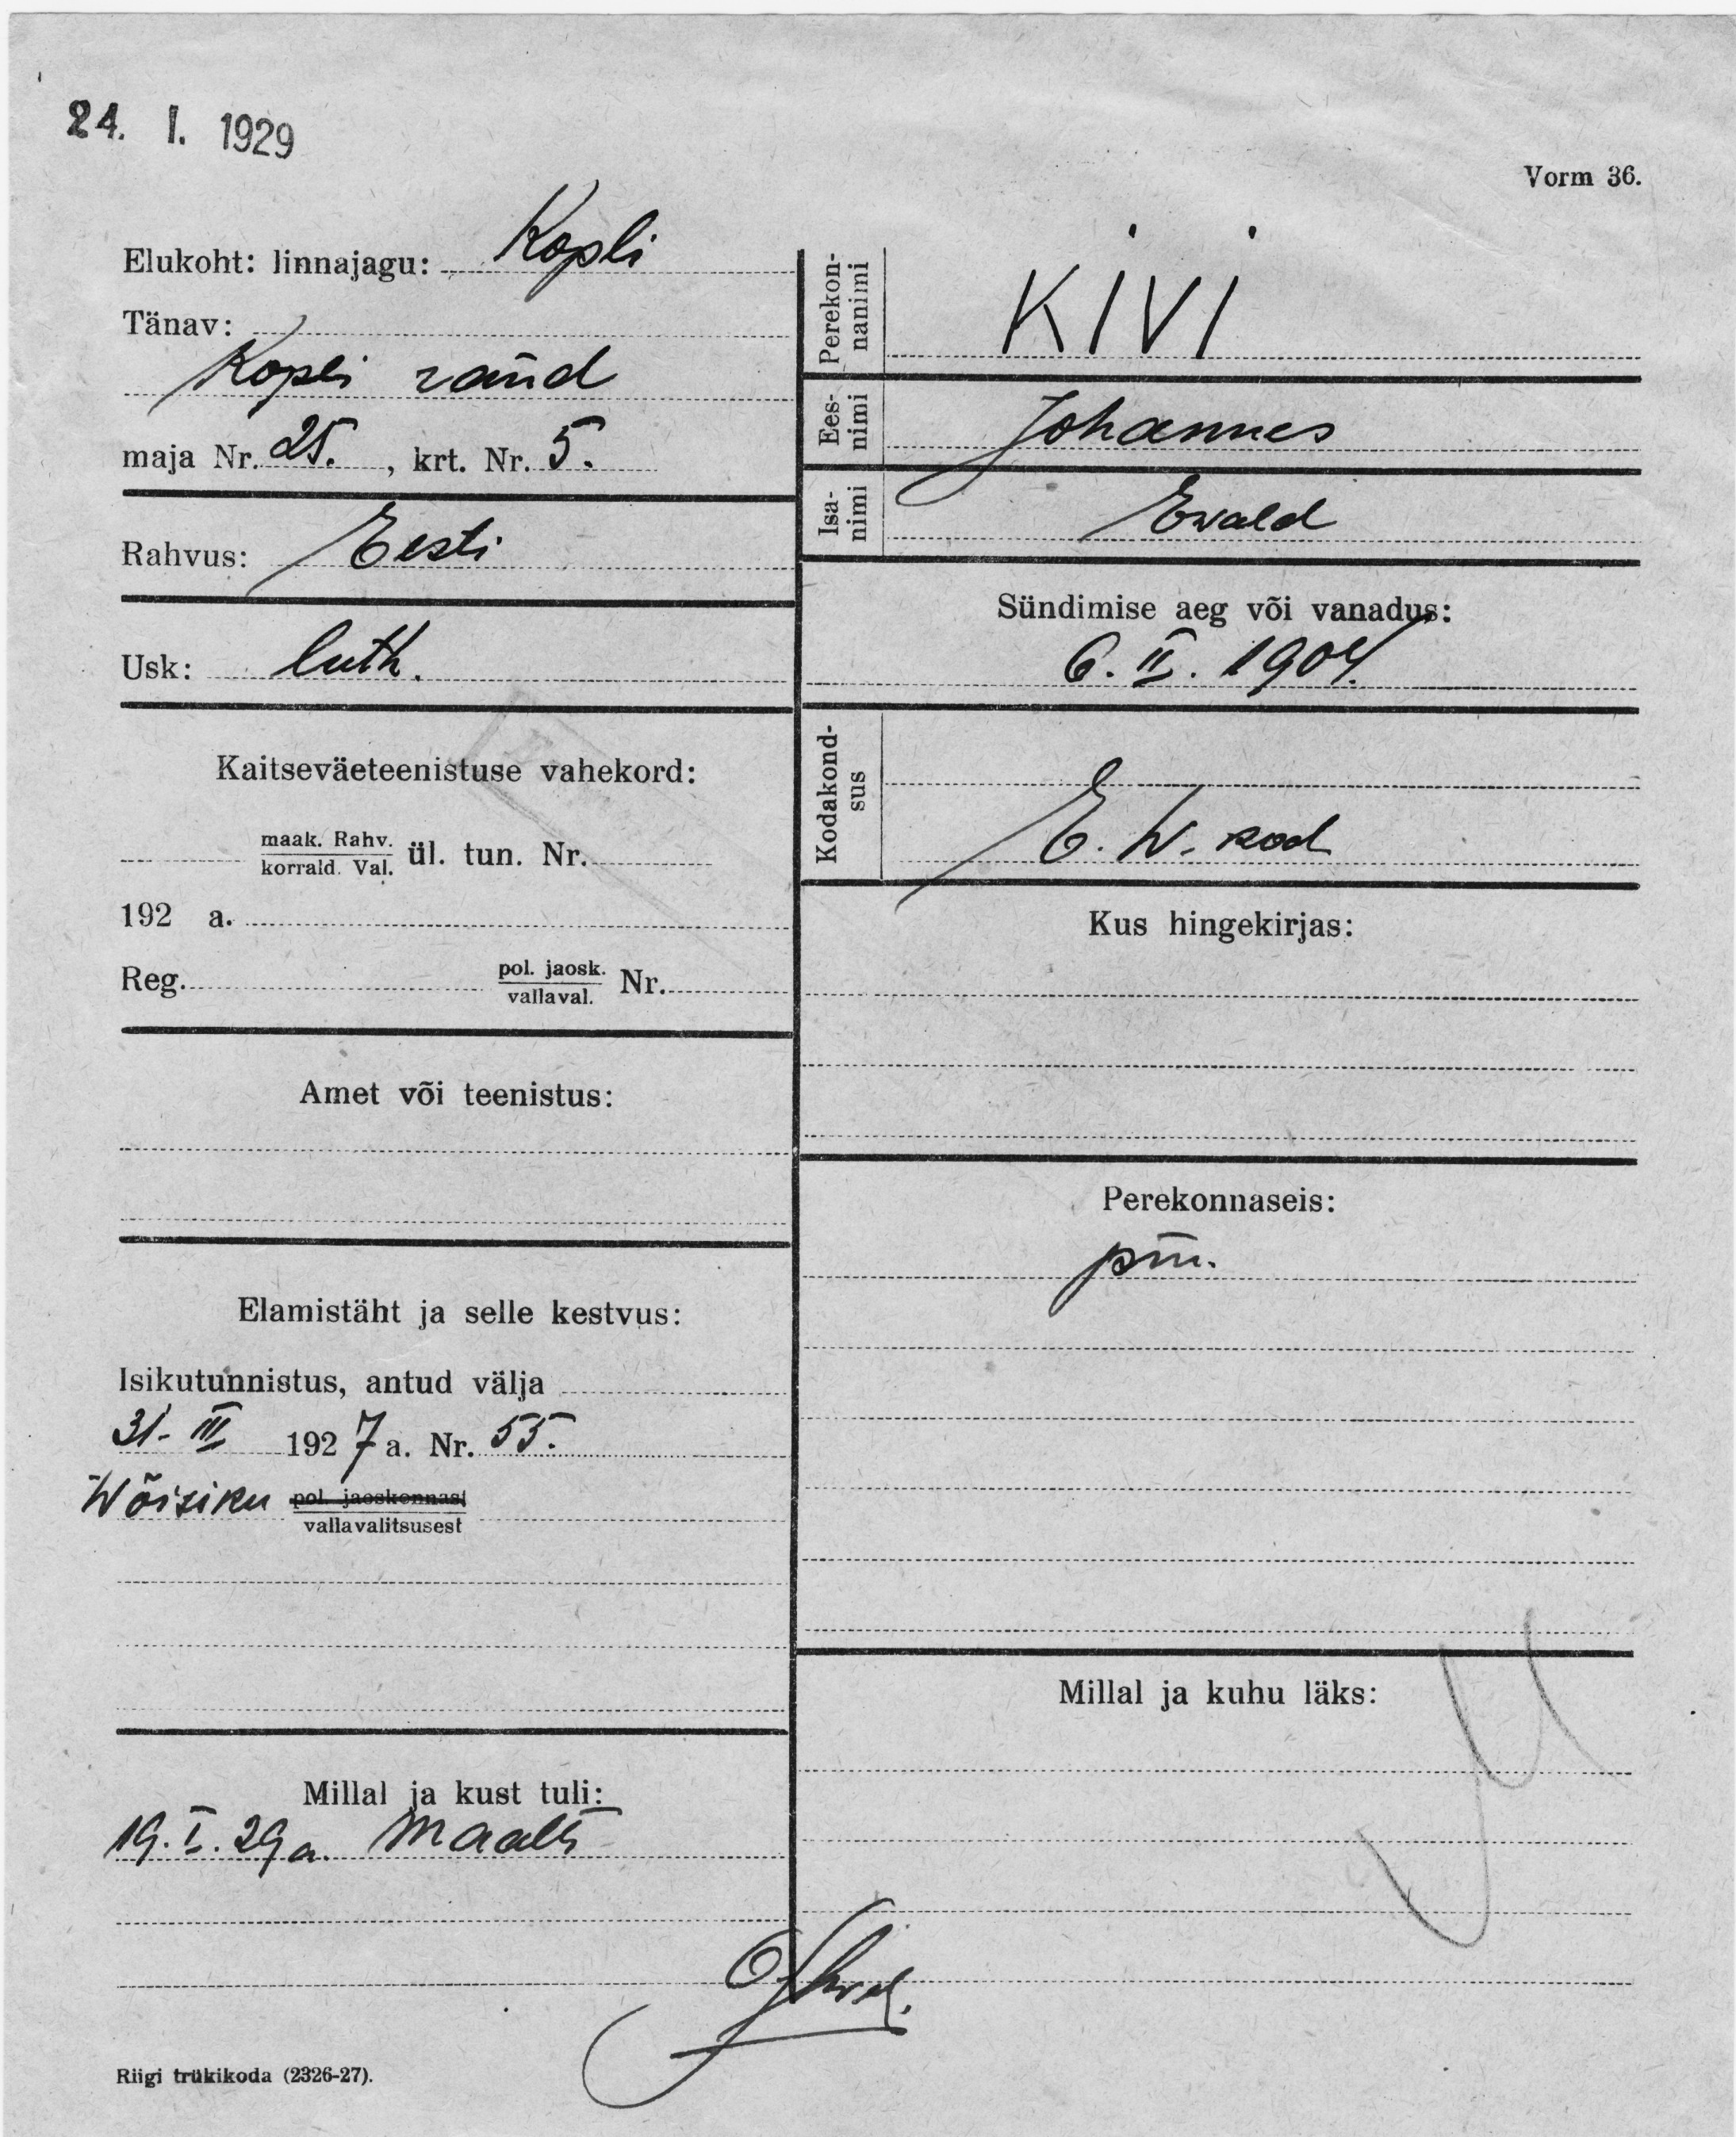 24. I. 1929
Vorm 36.
Elukoht: linnajagu: Kopli
Tänav:
Kopli rand
maja Nr. 25. , krt. Nr. 5.
Rahvus: Eesti
Usk: luth.
Kaitseväeteenistuse vahekord:
maak. Rahv.
korrald. Val. ül. tun. Nr.
192 a.
Reg. pol. jaosk.
vallaval. Nr.
Amet või teenistus:
Elamistäht ja selle kestvus:
Isikutunnistus, antud välja
31. III 1927 a. Nr. 55.
Wõisiku pol. jaoskonnast
vallavalitsusest
Millal ja kust tuli:
19. I. 29 a. Maalt
Riigi trükikoda (2326-27).
Perekon-
nanimi KIVI
Ees-
nimi Johannes
Isa-
nimi Ewald
Sündimise aeg või vanadus:
6. II. 1904.
Kodakond-
sus
E. W. kod
Kus hingekirjas:
Perekonnaseis:
Millal ja kuhu läks: